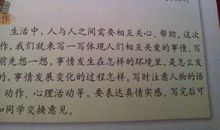 生活中，人与人之间需要相互关心、帮助。这次
作，我们就来写一写体现人们相互关爱的事情。写
前先想一想，事情发生在怎样的环境里，是怎么发
的，事情发展变化的过程怎样，写时注意人物的语
动作、心理活动等，要表达真情实感。写完后可
和同学交换意见。